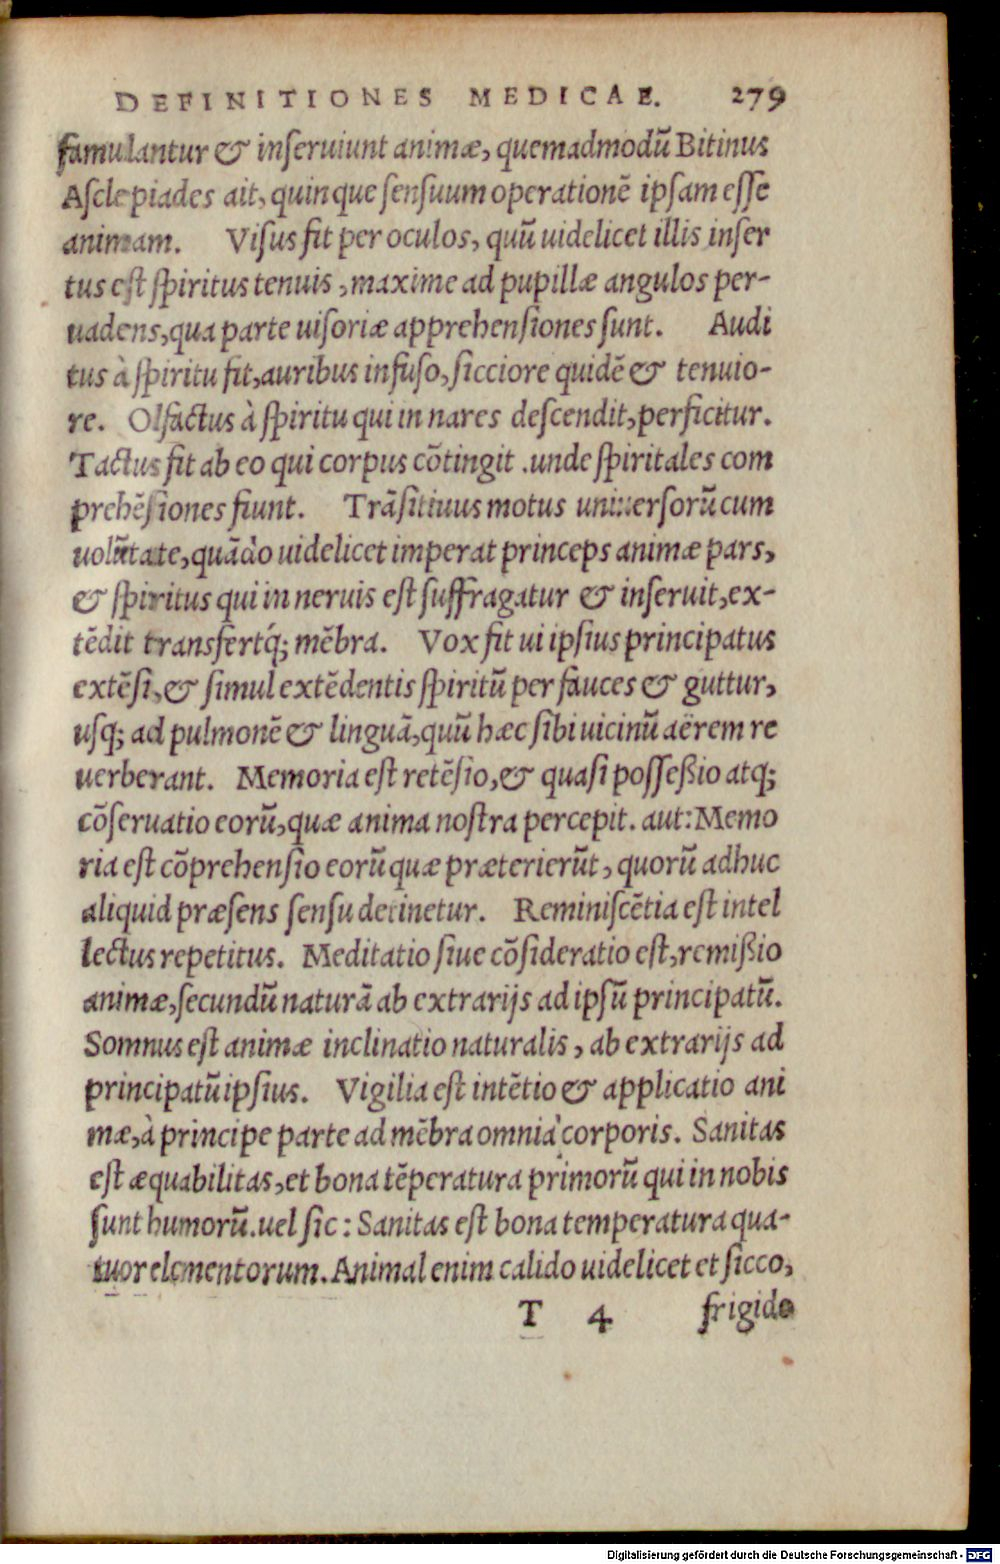 DEFINITIONES MEDICAE. 279
famulantur & inſeruiunt animæ, quemadmodũ Bitinus
Aſclepiades ait, quinque ſenſuum operationẽ ipſam eſſe
animam. Viſus fit per oculos, quũ uidelicet illis inſer
tus eſt ſpiritus tenuis, maxime ad pupillæ angulos per-
uadens, qua parte uiſoriæ apprehenſiones ſunt. Audi
tus à ſpiritu fit, auribus infuſo, ſicciore quidẽ & tenuio-
re. Olfactus à ſpiritu qui in nares deſcendit, perficitur.
Tactus fit ab eo qui corpus cõtingit .unde ſpiritales com
prehẽſiones fiunt. Trãſitiuus motus uniuerſorũ cum
uolũtate, quãdo uidelicet imperat princeps animæ pars,
& ſpiritus qui in neruis eſt ſuffragatur & inſeruit, ex-
tẽdit transfertq́; mẽbra. Vox fit ui ipſius principatus
extẽſi, & ſimul extẽdentis ſpiritũ per fauces & guttur,
uſq; ad pulmonẽ & linguã, quũ hæc ſibi uicinũ aërem re
uerberant. Memoria eſt retẽſio, & quaſi poſſeßio atq;
cõſeruatio eorũ, quæ anima noſtra percepit. aut: Memo
ria eſt cõprehenſio eorũ quæ præterierũt, quorũ adhuc
aliquid præſens ſenſu detinetur. Reminiſcẽtia eſt intel
lectus repetitus. Meditatio ſiue cõſideratio eſt, remißio
animæ, ſecundũ naturã ab extrarijs ad ipſũ principatũ.
Somnus eſt animæ inclinatio naturalis, ab extrarijs ad
principatũ ipſius. Vigilia eſt intẽtio & applicatio ani
mæ, à principe parte ad mẽbra omnia corporis. Sanitas
eſt æquabilitas, et bona tẽperatura primorũ qui in nobis
ſunt humorũ. uel ſic: Sanitas eſt bona temperatura qua-
tuor elementorum. Animal enim calido uidelicet et ſicco,
T 4 frigido
Digitalisierung gefördert durch die Deutsche Forschungsgemeinschaft - DFG